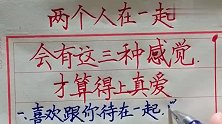 两个人在一起
会有这三种感觉
才算得上真爱
一.喜欢跟你待在一起.